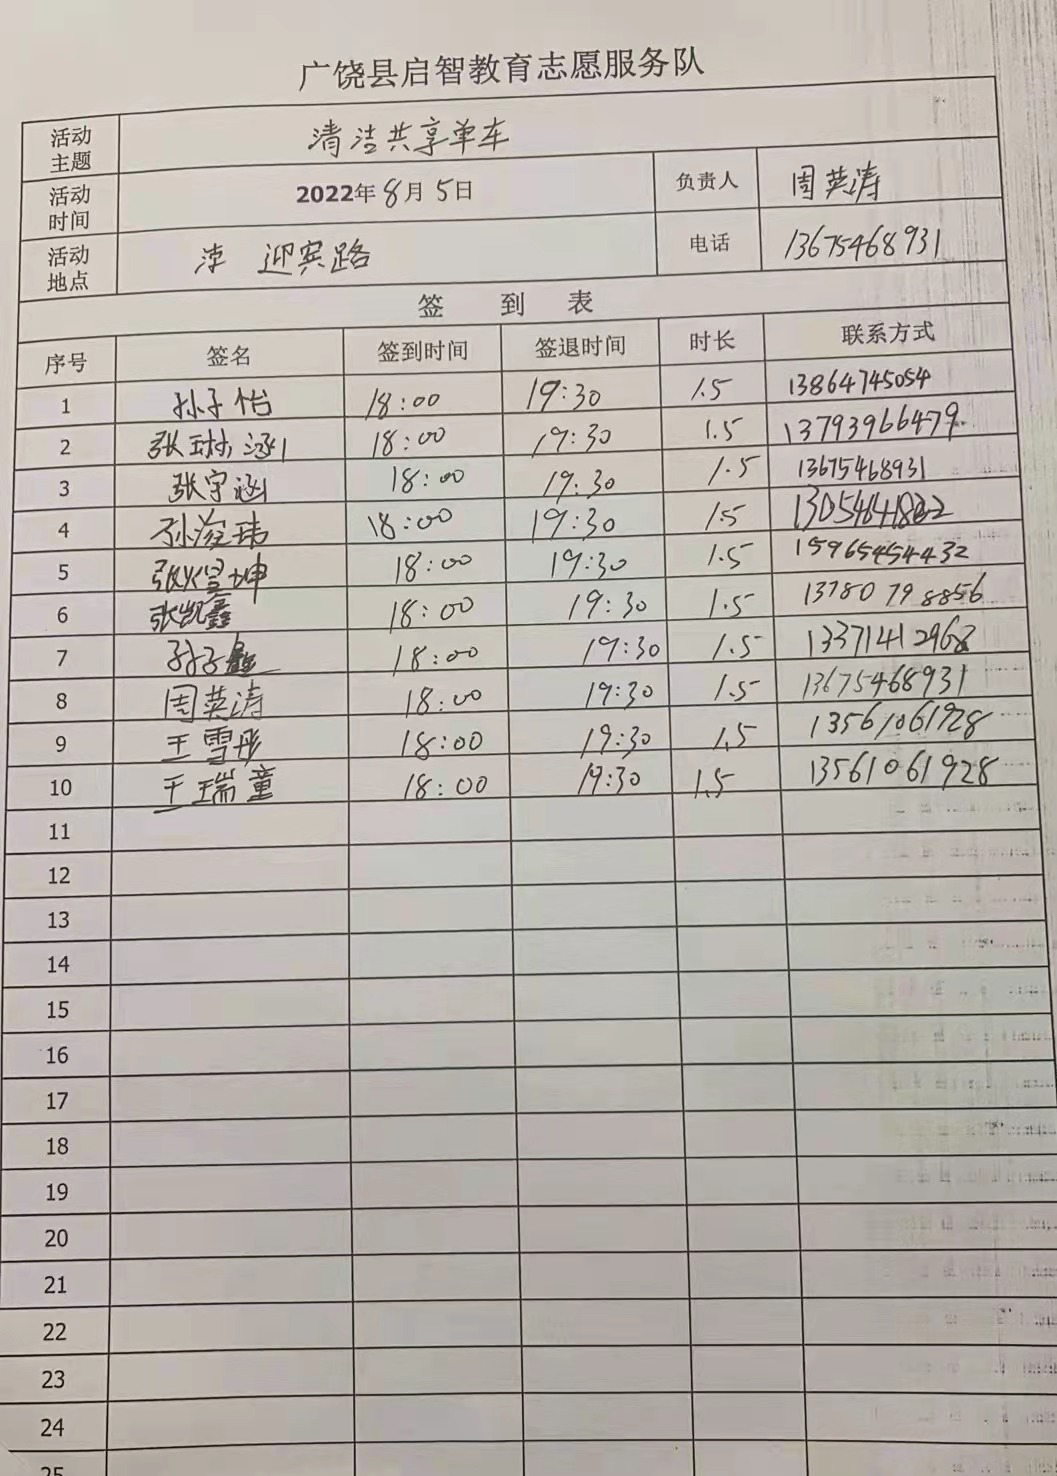 广饶县启智教育志愿服务队
活动主题 清洁共享单车
活动时间 2022年8月5日 负责人 周英涛
活动地点 迎宾路 电话 13675468931
签到表
序号 签名 签到时间 签退时间 时长 联系方式
1 孙子怡 18:00 19:30 1.5 13864745054
2 张琳涵 18:00 19:30 1.5 13793966479
3 张宇涵 18:00 19:30 1.5 13675468931
4 孙浚玮 18:00 19:30 1.5
5 张煜坤 18:00 19:30 1.5 15965454432
6 张凯鑫 18:00 19:30 1.5 13780798856
7 孙子鑫 18:00 19:30 1.5 13371412968
8 周英涛 18:00 19:30 1.5 13675468931
9 王雪彤 18:00 19:30 1.5 13561061928
10 王瑞童 18:00 19:30 1.5 13561061928
11
12
13
14
15
16
17
18
19
20
21
22
23
24
25